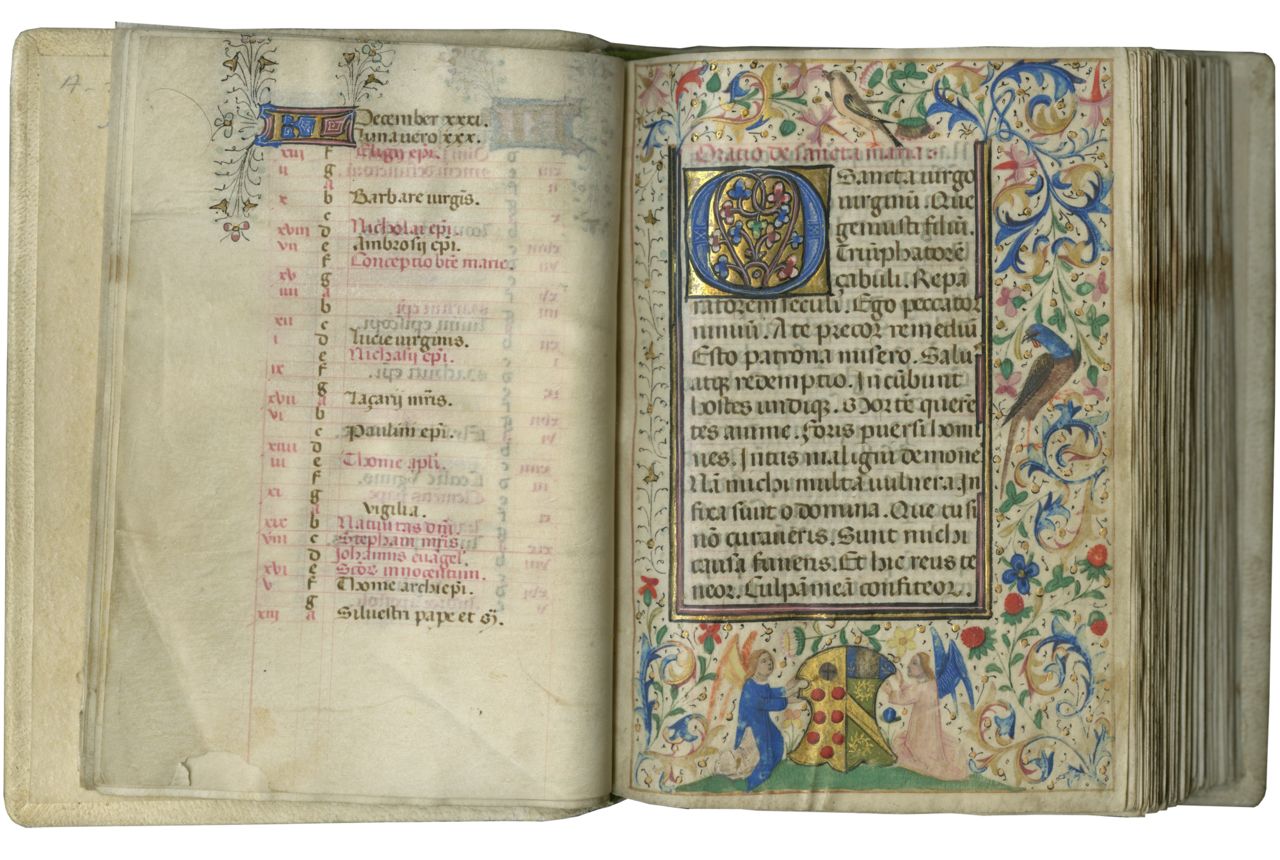 KL December xxxi.
luna vero xxx.
xiii f Eligii epi.
ii g
a
x b Barbare virgis.
c
xviii d Nicholai epi.
vii e Ambrosij epi.
f Conceptio bte marie.
xv g
iiii a
b
xii c
i d Lucie virginis.
e Nichasij epi.
ix f
g
xvii a Laçarij mris.
vi b
c Paulini epi.
xiiii d
iii e Thome apli.
f
xi g
a vigilia.
xix b Natiuitas dni.
viii c Stephani mris.
d Johannis euagel.
xvi e Scor innocentum.
v f Thome archiepi.
g
xiii a Siluestri pape et
Oratio de sancta maria.
O Sancta uirgo
uirginũ. Que
genuisti filiũ.
Triũphatorẽ
çabuli. Repa
ratorem seculi. Ego peccator
nimiũ. A te precor remediũ
Esto patrona misero. Salus
atqȝ redemptio. Incũbunt
hostes undiqȝ. Mortẽ querẽ
tes anime. Foris puersi homi
nes. Intus maligni demone
Nã michi multa uulnera In
fixa sunt o domina. Que tu si
nõ curaueris. Sunt michi
causa funeris. Et hic reus te
neor. Culpã meã confiteor.